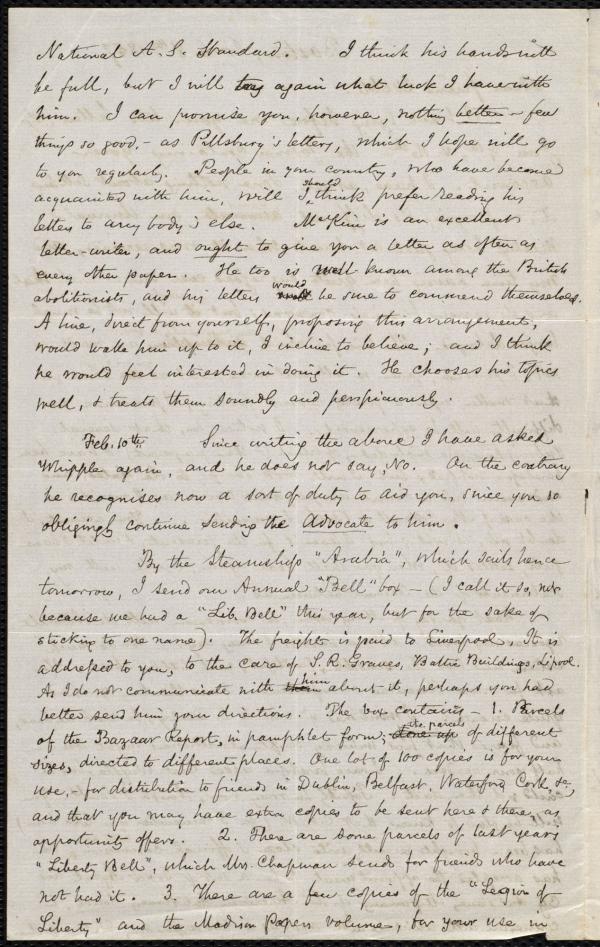 National A. S. Standard. I think his hands will
be full, but I will try again what luck I have with
him. I can promise you, however, nothing better - few
things so good, - as Pillsbury's letters, which I hope will go
to you regularly. People in your country, who have become
acquainted with him, will I should think prefer reading his
letters to any body's else. McKim is an excellent
letter-writer, and ought to give you a letter as often as
every other paper. He too is well known among the British
abolitionists, and his letters would be sure to commend themselves.
A line, direct from yourself, proposing this arrangement,
would walk him up to it, I incline to believe; and I think
he would feel interested in doing it. He chooses his topics
well, & treats them soundly and perspicuously.
Feb. 10th. Since writing the above I have asked
Whipple again, and he does not say, No. On the contrary
he recognises now a sort of duty to aid you, since you so
obligingly continue sending the Advocate to him.
By the Steamship "Arabia", which sails hence
tomorrow, I send our Annual "Bell" box - (I call it so, not
because we had a "Lib. Bell" this year, but for the sake of
sticking to one name). The freight is paid to Liverpool. It is
addressed to you, to the care of S. R. Graves, Baltic Buildings, L'pool.
As I do not communicate with him about it, perhaps you had
better send him your directions. The box contains - 1. Parcels
of the Bazaar Report, in pamphlet form; parcels of different
sizes, directed to different places. One lot of 100 copies is for your
use, - for distribution to friends in Dublin, Belfast, Waterford, Cork, &c,
and that you may have extra copies to be sent here & there, as
opportunity offers. 2. There are some parcels of last year's
"Liberty Bell", which Mrs. Chapman sends for friends who have
not had it. 3. There are a few copies of the "Legion of
Liberty" and the Madison Papers volume, for your use in